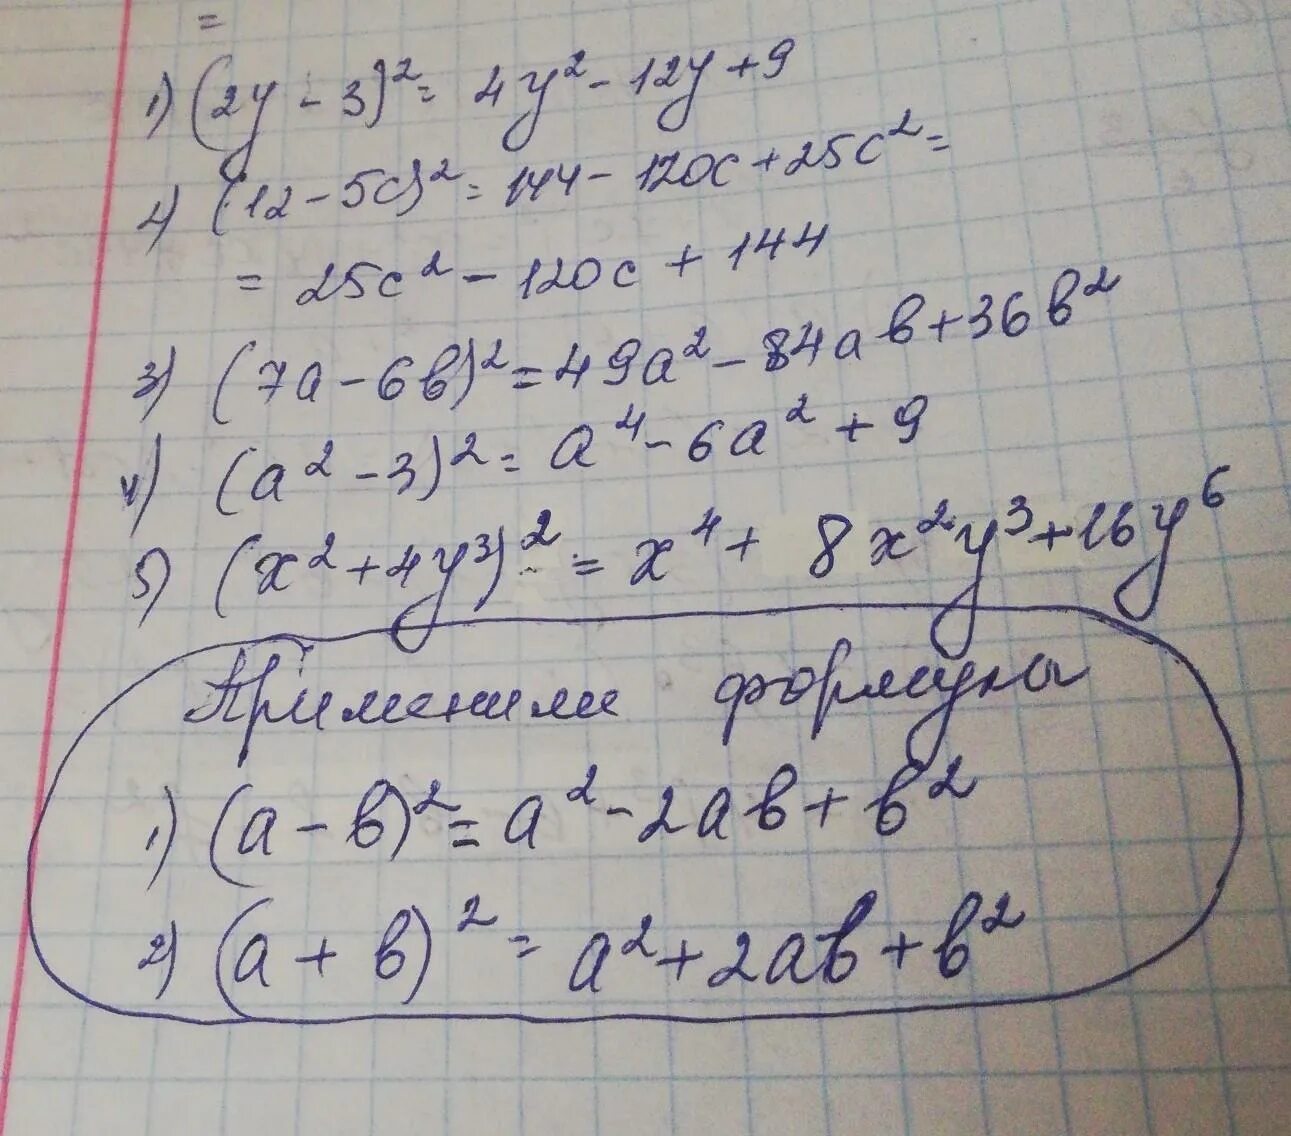 =
1) (2y - 3)² = 4y² - 12y + 9
2) (12 - 5c)² = 144 - 120c + 25c² =
= 25c² - 120c + 144
3) (7a - 6b)² = 49a² - 84ab + 36b²
4) (a² - 3)² = a⁴ - 6a² + 9
5) (x² + 4y³)² = x⁴ + 8x²y³ + 16y⁶
Применили формулы
1) (a - b)² = a² - 2ab + b²
2) (a + b)² = a² + 2ab + b²